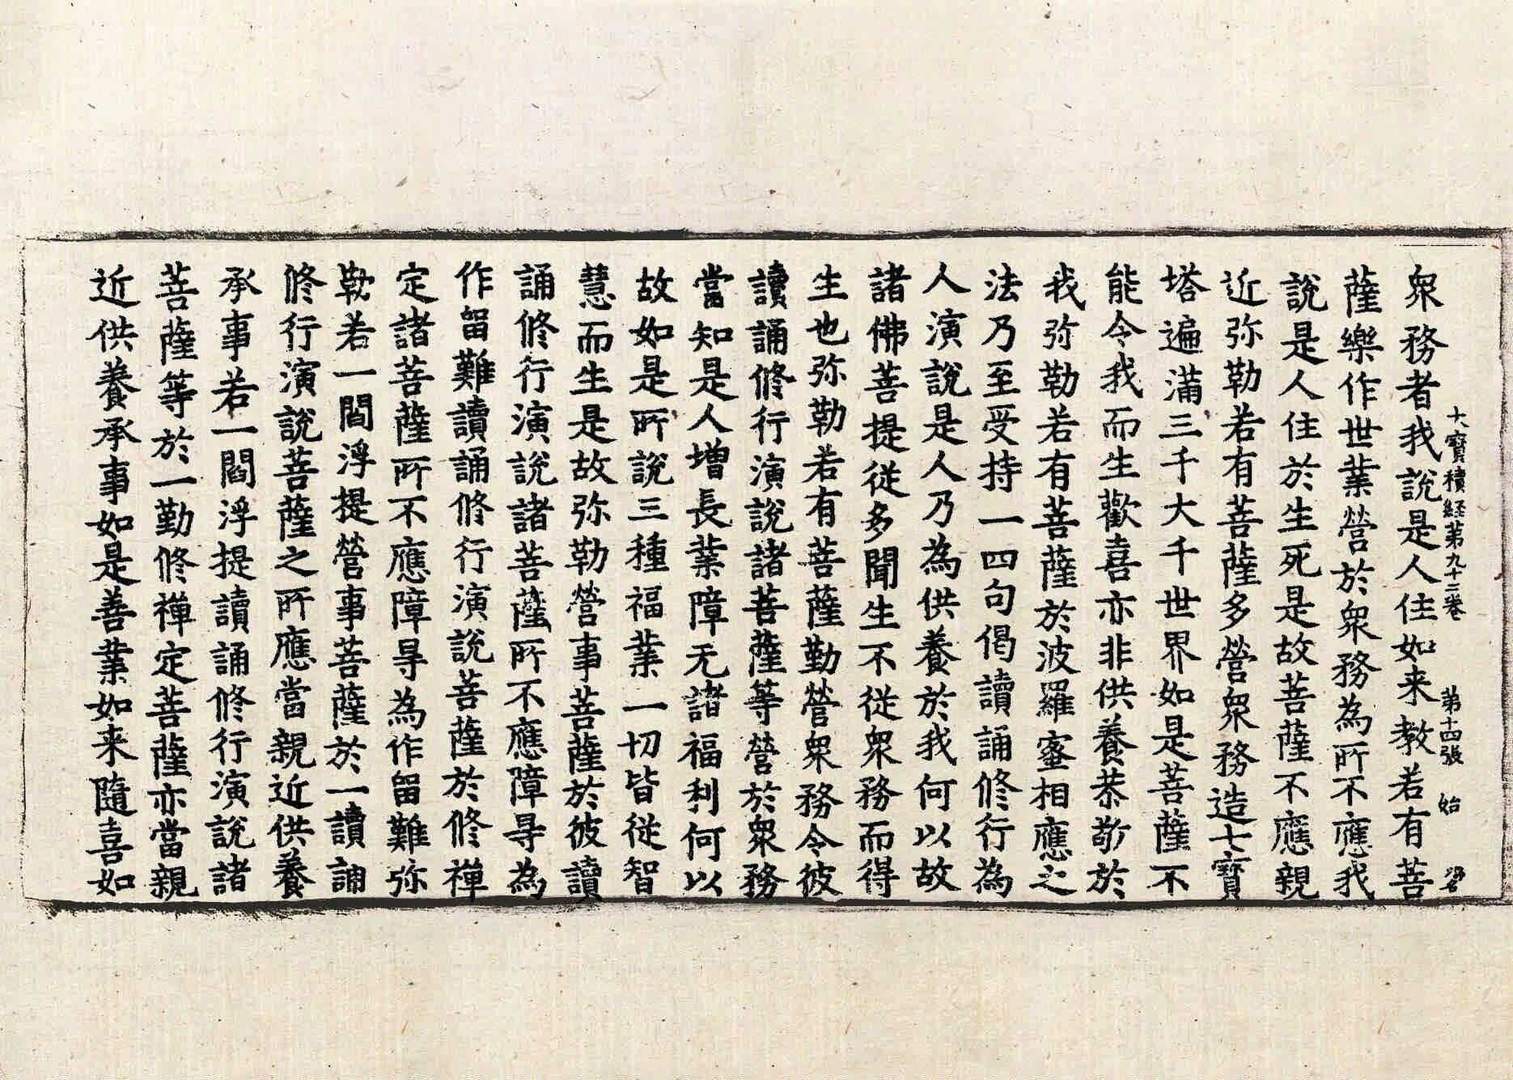 大寶積経第九十三卷　第十四張　始
眾務者我說是人住如来教若有菩
薩樂作世業營於眾務為所不應我
說是人住於生死是故菩薩不應親
近弥勒若有菩薩多營眾務造七寶
塔遍滿三千大千世界如是菩薩不
能令我而生歡喜亦非供養恭敬於
我弥勒若有菩薩於波羅蜜相應之
法乃至受持一四句偈讀誦修行為
人演說是人乃為供養於我何以故
諸佛菩提従多聞生不従眾務而得
生也弥勒若有菩薩勤營眾務令彼
讀誦修行演說諸菩薩等營於眾務
當知是人增長業障无諸福利何以
故如是所說三種福業一切皆従智
慧而生是故弥勒營事菩薩於彼讀
誦修行演說諸菩薩所不應障㝵為
作留難讀誦修行演說菩薩於修禪
定諸菩薩所不應障㝵為作留難弥
勒若一閻浮提營事菩薩於一讀誦
修行演說菩薩之所應當親近供養
承事若一閻浮提讀誦修行演說諸
菩薩等於一勤修禪定菩薩亦當親
近供養承事如是善業如来隨喜如